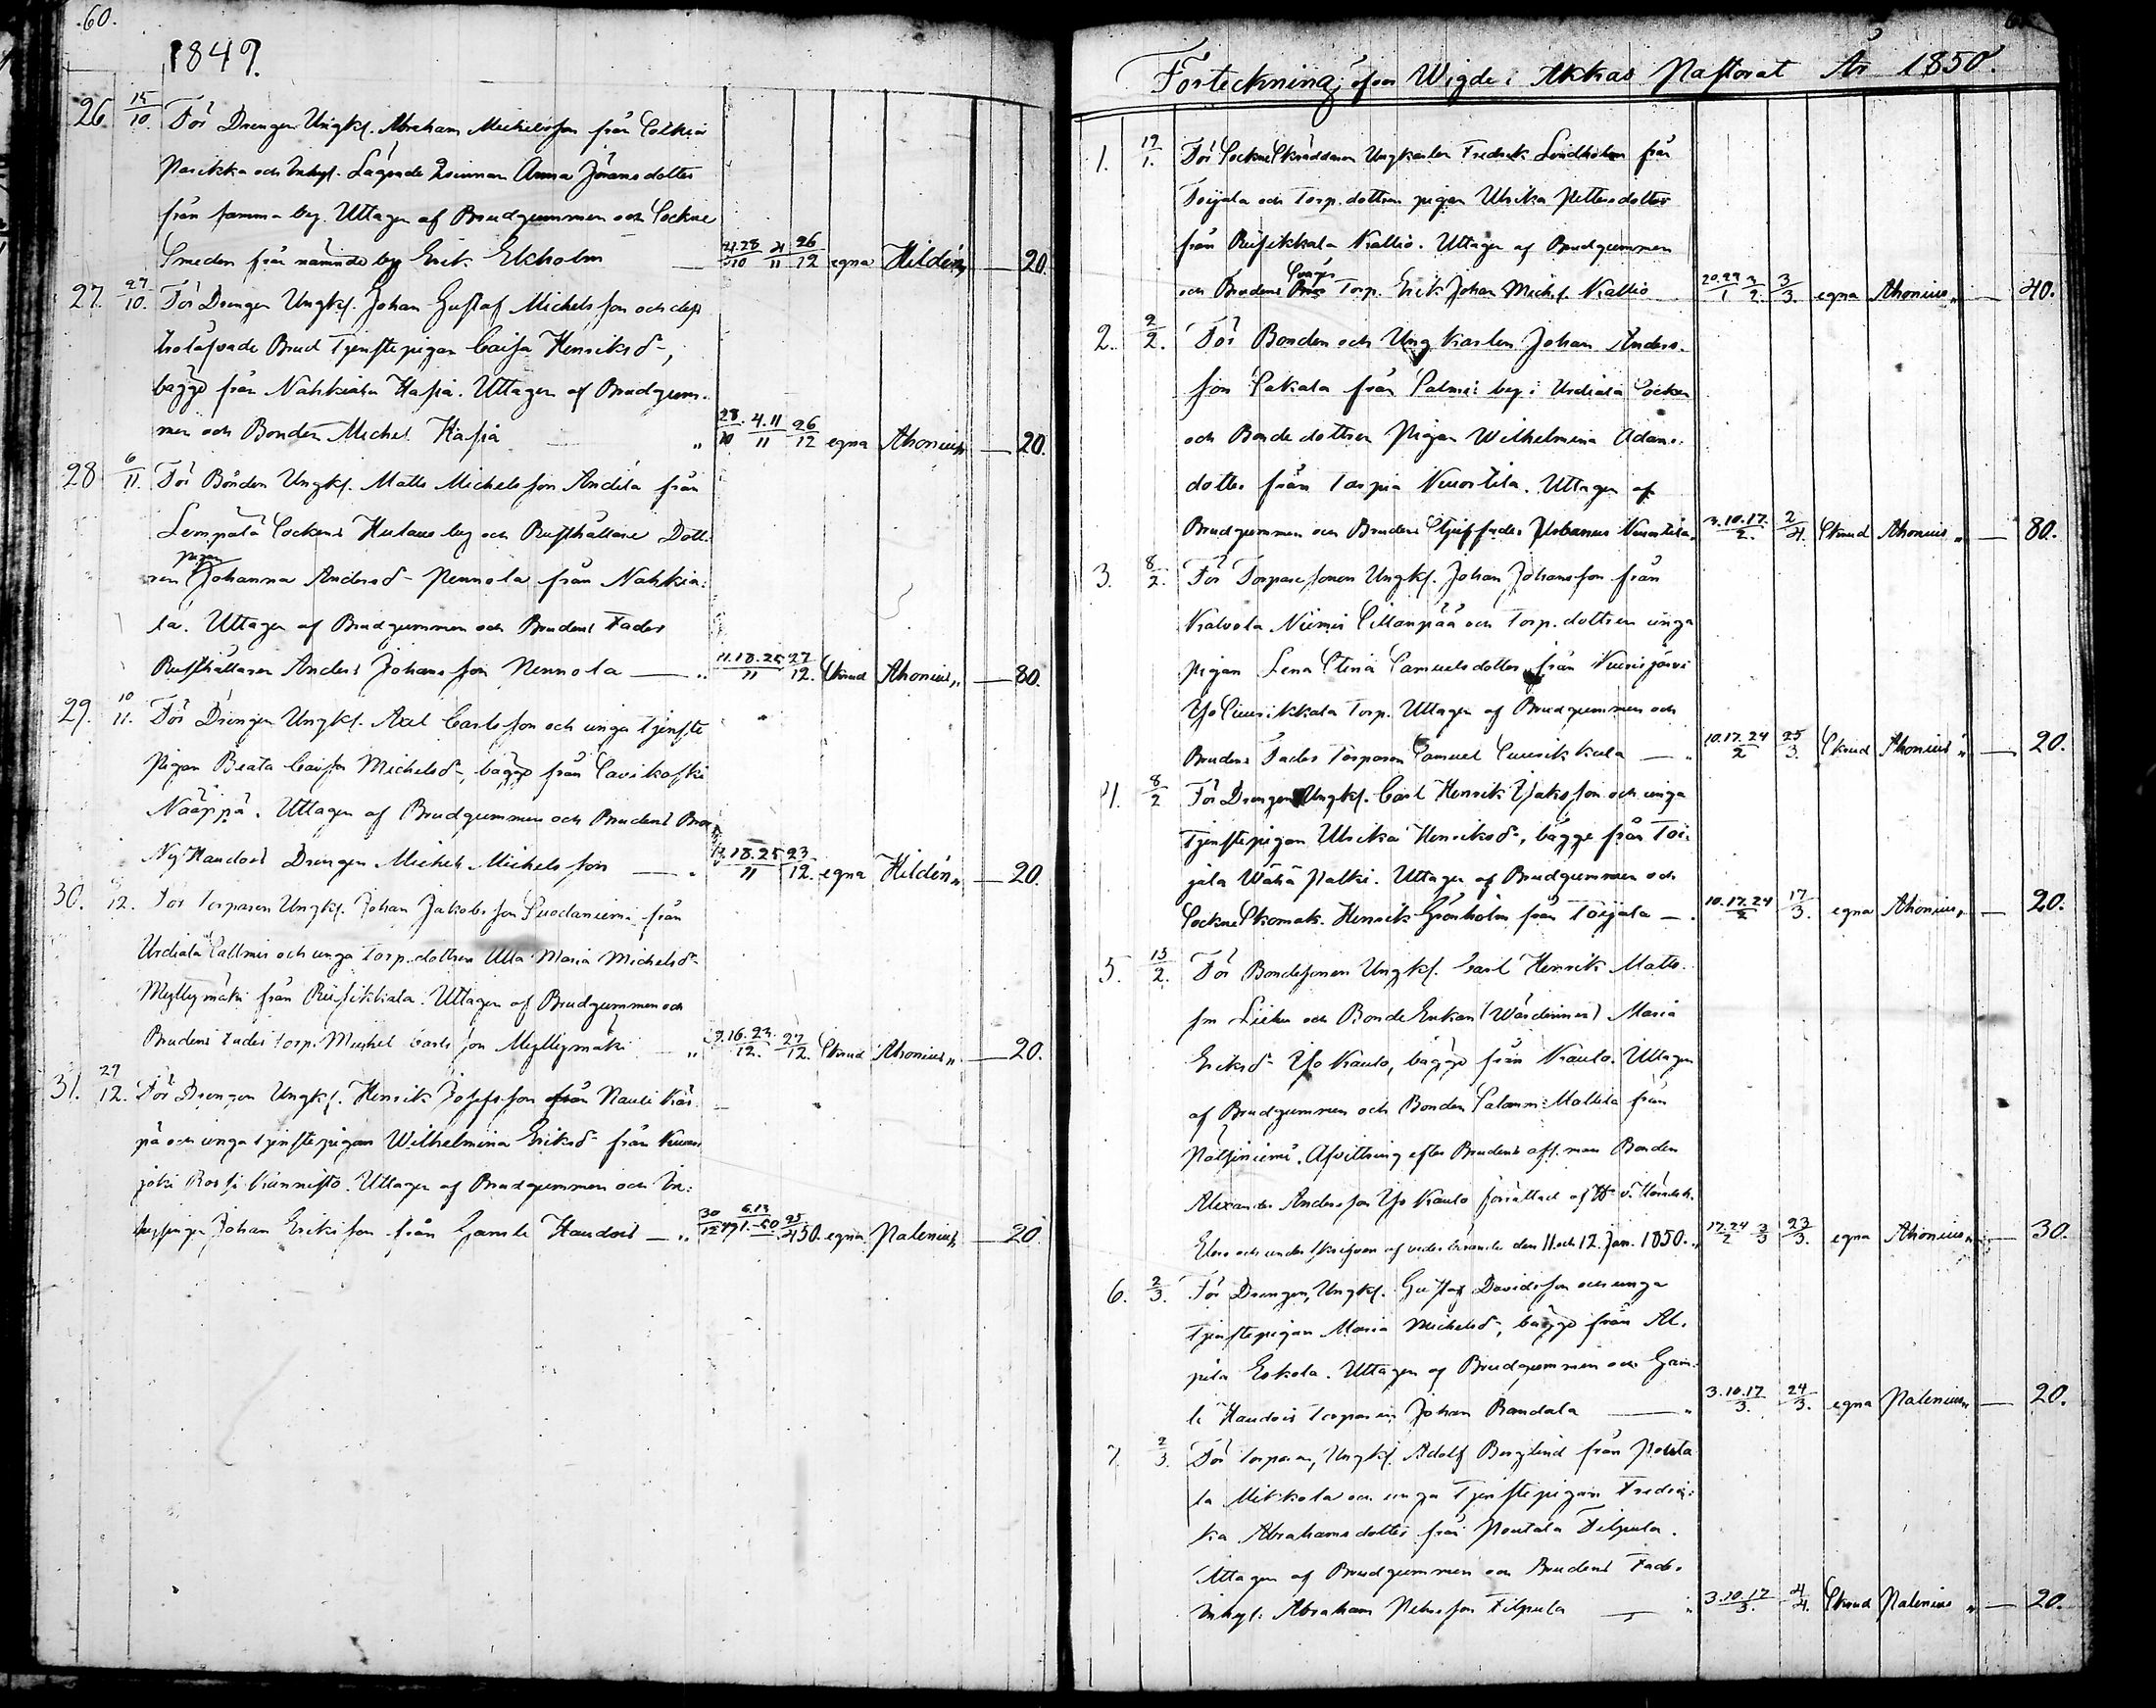 60.
1849.
26. 15/10. För Drengen Ungk. Abraham Michelsson från
Parikka och Inhys. Lägrade Qvinnan Anna Göransdotter
från samma by. Uttagen af Brudgummen och Sockne
Smeden från nämnde by Erik Ekholm — 21.28/10 4/11 26/12 egna Hildén — 20.
27. 27/10. För Drengen Ungk. Johan Gustaf Michelsson och dess
trolofvade Brud Tjenstepigan Caisa Henriksd.,
bägge från Nahkiala Hapia. Uttagen af Brudgum-
men och Bonden Michel Hapia " 28/10 4.11/11 26/12 egna Ahonius — 20.
28. 6/11. För Bonden Ungk. Matts Michelsson Andila från
Lempälä Sockens by och Rusthållare Dott-
ren pigan Johanna Andersd. Pennola från Nahkia-
la. Uttagen af Brudgummen och Brudens Fader
Rusthållaren Anders Johansson Pennola — " 11.18.25/11 27/12. Skrud Ahonius " — 80.
29. 10/11. För Drengen Ungk. Axel Carlsson och unga Tjenste
Pigan Beata Caisa Michelsd., bägge från Savikoski
Nääppä. Uttagen af Brudgummen och Brudens Bror
Ny Handois Drengen Michel Michelsson — " 11.18.25/11 23/12. egna Hildén " — 20.
30. /12. För Torparen Ungk. Johan Jakobsson Suodaniemi från
Urdiala Salmis och unga Torp. dottren Ulla Maria Michelsd.
Myllymäki från Riisikkala. Uttagen af Brudgummen och
Brudens Fader Torp. Michel Carlsson Myllymäki " 9.16.23/12. 27/12. Skrud Ahonius " — 20.
31. 29/12. För Drengen Ungk. Henrik Josefsson från Kär-
pä och unga Tjenstepigan Wilhelmina Eriksd. från
joki Rossi Kannisto. Uttagen af Brudgummen och In-
hysingen Johan Eriksson från Gamle Handois — " 30/12 49 6.13/1.-50 25/4 50. egna Palenius — 20.
Förteckning öfver Wigde i Akkas Pastorat År 1850.
1. 17/1. För Sockne Skräddaren Ungkarlen Fredrik Lindholm från
Toijala och Torp. dottren pigan Ulrika Pettersdotter
från Riisikkala Kallio. Uttagen af Brudgummen
och Brudens Svåger Torp. Erik Johan Michels. Kallio 20.27/1 3/2. 3/3. egna Ahonius " — 40.
2. 2/2. För Bonden och Ungkarlen Johan Anders-
son Sakala från Salmis by i Urdiala Socken
och Bonde dottren Pigan Wilhelmina Adams-
dotter från Tarpia Nuortila. Uttagen af
Brudgummen och Brudens Styffader Urbanus Nuortila. 3.10.17./2. 2/4. Skrud Ahonius " — 80.
3. 8/2. För Torpare sonen Ungk. Johan Johansson från
Kalvola Niemis Sillanpää och Torp. dottren unga
pigan Lena Stina Samuelsdotter från Kurisjärvi
Yso Torp. Uttagen af Brudgummen och
Brudens Fader Torparen Samuel — " 10.17.24/2 25/3. Skrud Ahonius " — 20.
4. 8/2 För Drengen Ungk. Carl Henrik Isaksson och unga
Tjenstepigan Ulrika Henriksd., bägge från Toi-
jala Wähä Palki. Uttagen af Brudgummen och
Sockne Skomak. Henrik Grönholm från Toijala — . 10.17.24/2 17/3. egna Ahonius " — 20.
5. 15/2. För Bondesonen Ungk. Carl Henrik Matts-
son och Bonde Enkan (Wärdinnan) Maria
Eriksd. Yso Kaulo, bägge från Kaulo. Uttagen
af Brudgummen och Bonden Salomon Mattila från
Pätsiniemi. Afvittring efter Brudens afl. man Bonden
Alexander Andersson Yso Kaulo förrättad af
och underskrifven af vederbörande den 11 och 12. Jan. 1850. " 17.24/2 3/3 23/3. egna Ahonius " — 30.
6. 2/3. För Drengen, Ungk. Gustaf Davidsson och unga
Tjenstepigan Maria Michelsd., bägge från Al-
pila Eskola. Uttagen af Brudgummen och Gam-
le Handois Torparen Johan Randala — " 3.10.17/3. 24/3. egna Palenius " — 20.
7. 2/3. För Torparen, Ungk. Adolf Berglind från Konta-
la Mikkola och unga Tjenstepigan Fredri-
ka Abrahamsdotter från Kontala Filpula.
Uttagen af Brudgummen och Brudens Fader
Inhys. Abraham Petersson Filpula — " 3.10.17/3. 4/4. Skrud Palenius " — 20.